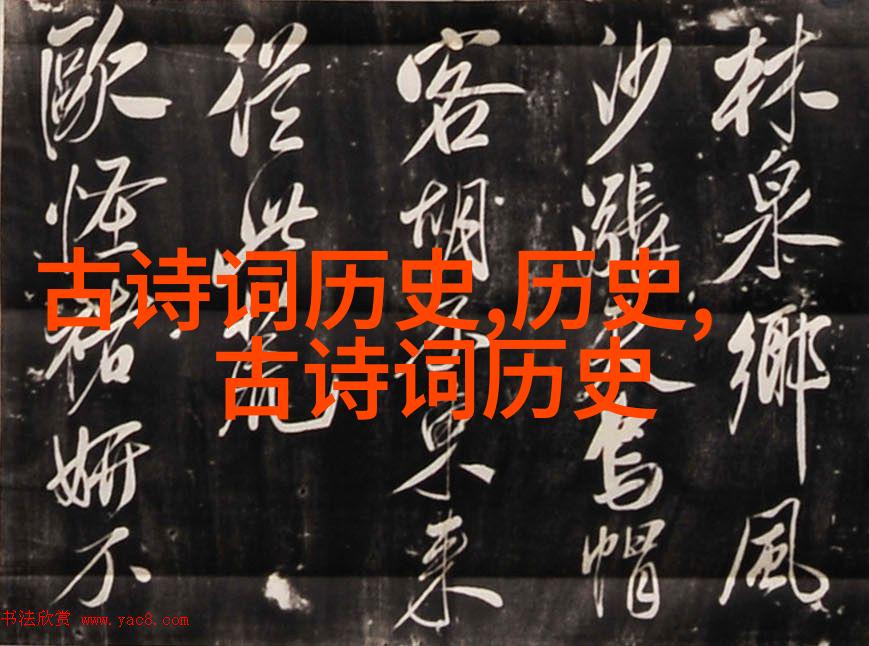 林泉鄉風
沙漲烏帽
客胡東來
從此
歐怪褚妍不
古诗词历史,历史,
古诗词历史
书法欣赏 www.yac8.com